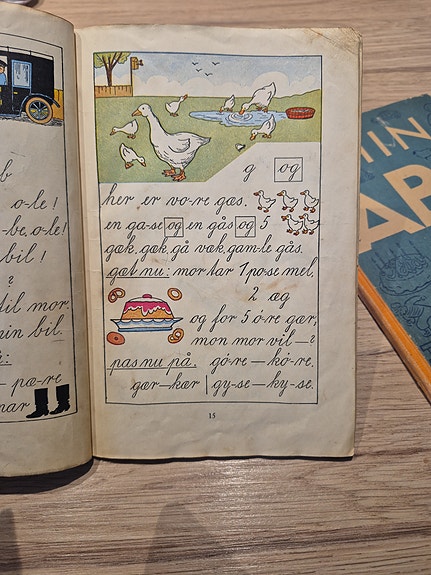 b
o-le!
-be, o-le!
bil!
?
til mor
min bil.
pæ-re
g og
her er vo-re gæs.
en ga-se og en gås og 5
gæk, gæk, gå væk, gam-le gås.
gæt nu: mor har 1 po-se mel,
2 æg
og for 5 ó-re gær;
mon mor vil — ?
pas nu på. gó-re — kó-re.
gær — kær | gy-se — ky-se.
15
AP